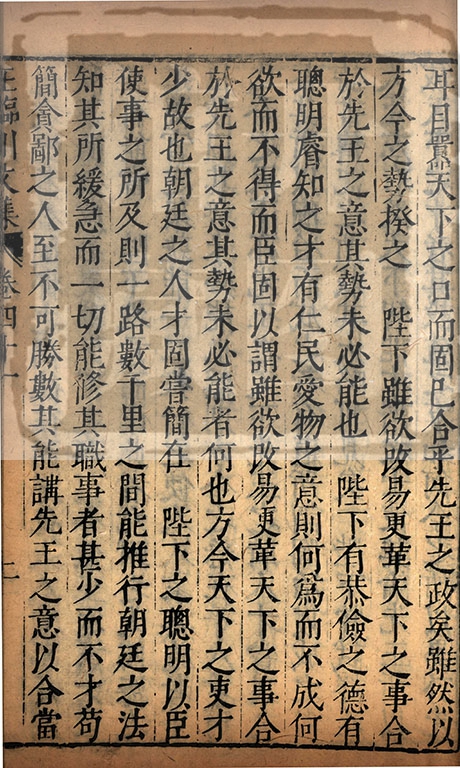 耳目嚻天下之口而固已合乎先王之政矣雖然以
方今之勢揆之 陛下雖欲改易更革天下之事合
於先王之意其勢未必能也 陛下有恭儉之德有
聰明睿知之才有仁民愛物之意則何爲而不成何
欲而不得而臣固以謂雖欲改易更革天下之事合
於先王之意其勢未必能者何也方今天下之吏才
少故也朝廷之人才固嘗簡在 陛下之聰明以臣
使事之所及則一路數千里之間能推行朝廷之法
知其所緩急而一切能修其職事者甚少而不才苟
簡貪鄙之人至不可勝數其能講先王之意以合當
王臨川文集 卷四十一 二